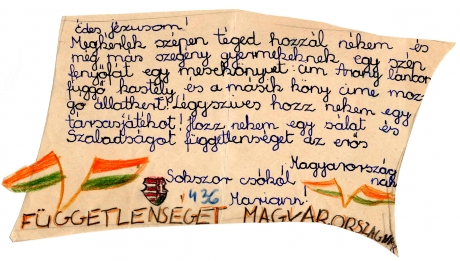 Édes Jézusom!
Megkérlek szépen téged hozzál nekem és
még más szegény gyermekeknek egy szép
fenyőfát egy mesekönyvet cím Arany láncon
függő kastély és a másik köny címe moz-
gó állatkert! Légyszíves hozz nekem egy
társasjátékot! Hozz nekem egy sálat és
Szabadságot függetlenséget az erős
Magyarország
nak
Sokszor csókol
Mariann!
FÜGGETLENSÉGET MAGYARORSZÁGNAK